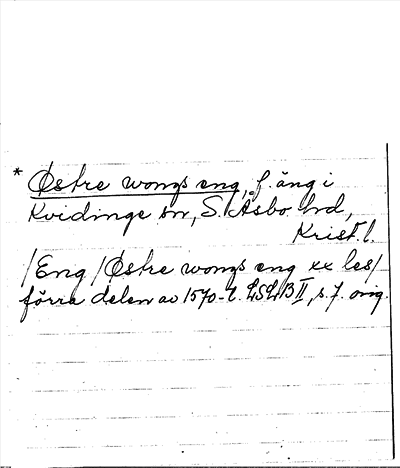 * Østre wongs eng, f. äng i
Kvidinge sn, S. Åsbo hd,
Krist. l.
/Eng/Østre wongs eng xx les/
förra delen av 1570-t. LSLB II, s. 7. orig.